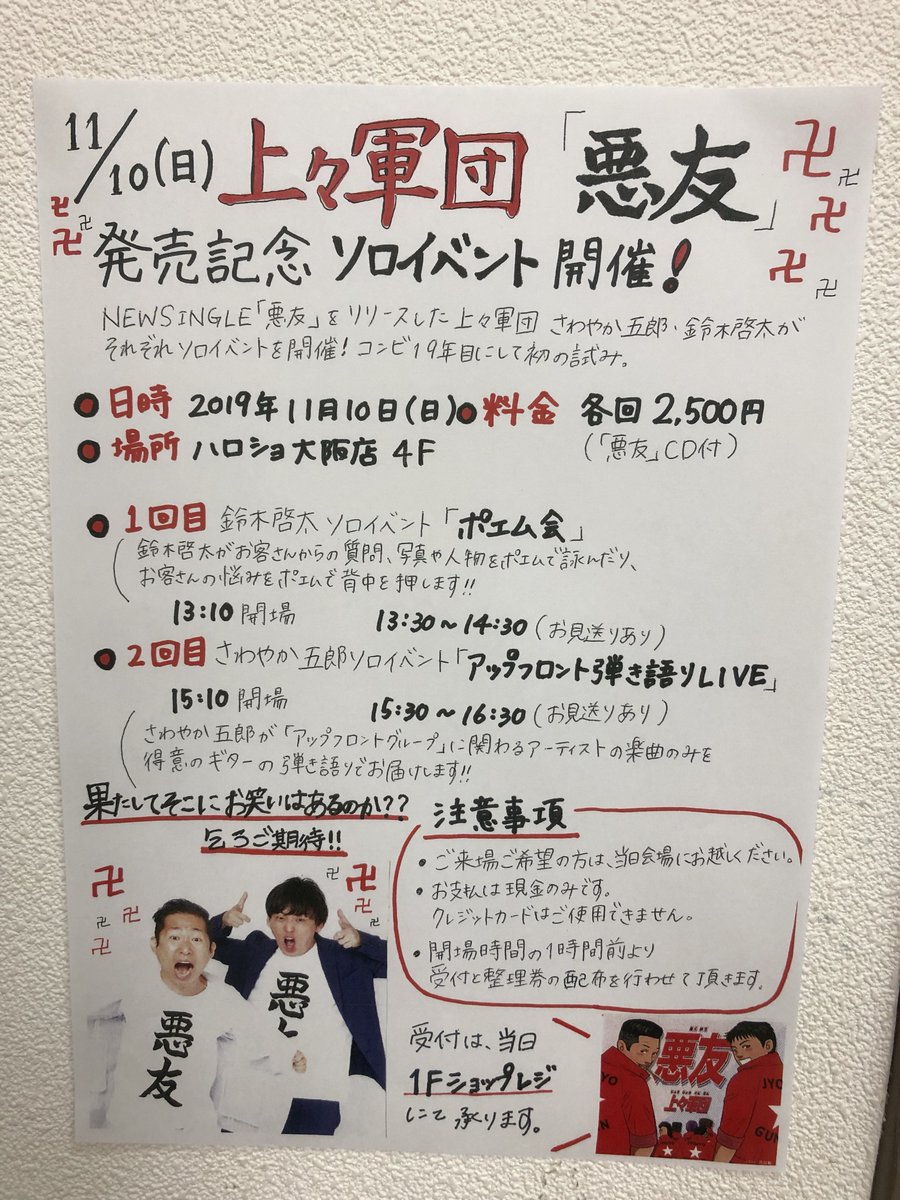 11/10(日) 上々軍団「悪友」
発売記念 ソロイベント 開催!
NEWSINGLE「悪友」をリリースした上々軍団 さわやか五郎・鈴木啓太が
それぞれソロイベントを開催! コンビ19年目にして初の試み。
● 日時 2019年11月10日(日) ● 料金 各回 2,500円
(「悪友」CD付)
● 場所 ハロショ大阪店 4F
● 1回目 鈴木啓太 ソロイベント「ポエム会」
鈴木啓太がお客さんからの質問、写真や人物をポエムで詠んだり、
お客さんの悩みをポエムで背中を押します!!
13:10 開場 13:30~14:30 (お見送りあり)
● 2回目 さわやか五郎ソロイベント「アップフロント弾き語りLIVE」
15:10 開場 15:30~16:30 (お見送りあり)
さわやか五郎が「アップフロントグループ」に関わるアーティストの楽曲のみを
得意のギターの弾き語りでお届けします!!
果たしてそこにお笑いはあるのか??
乞うご期待!!
注意事項
・ご来場ご希望の方は、当日会場にお越しください。
・お支払は現金のみです。
クレジットカードはご使用できません。
・開場時間の1時間前より
受付と整理券の配布を行わせて頂きます。
悪友
悪
受付は、当日
1Fショップレジ
にて承ります。
悪友
上々軍団
JYO
JYO
GUN